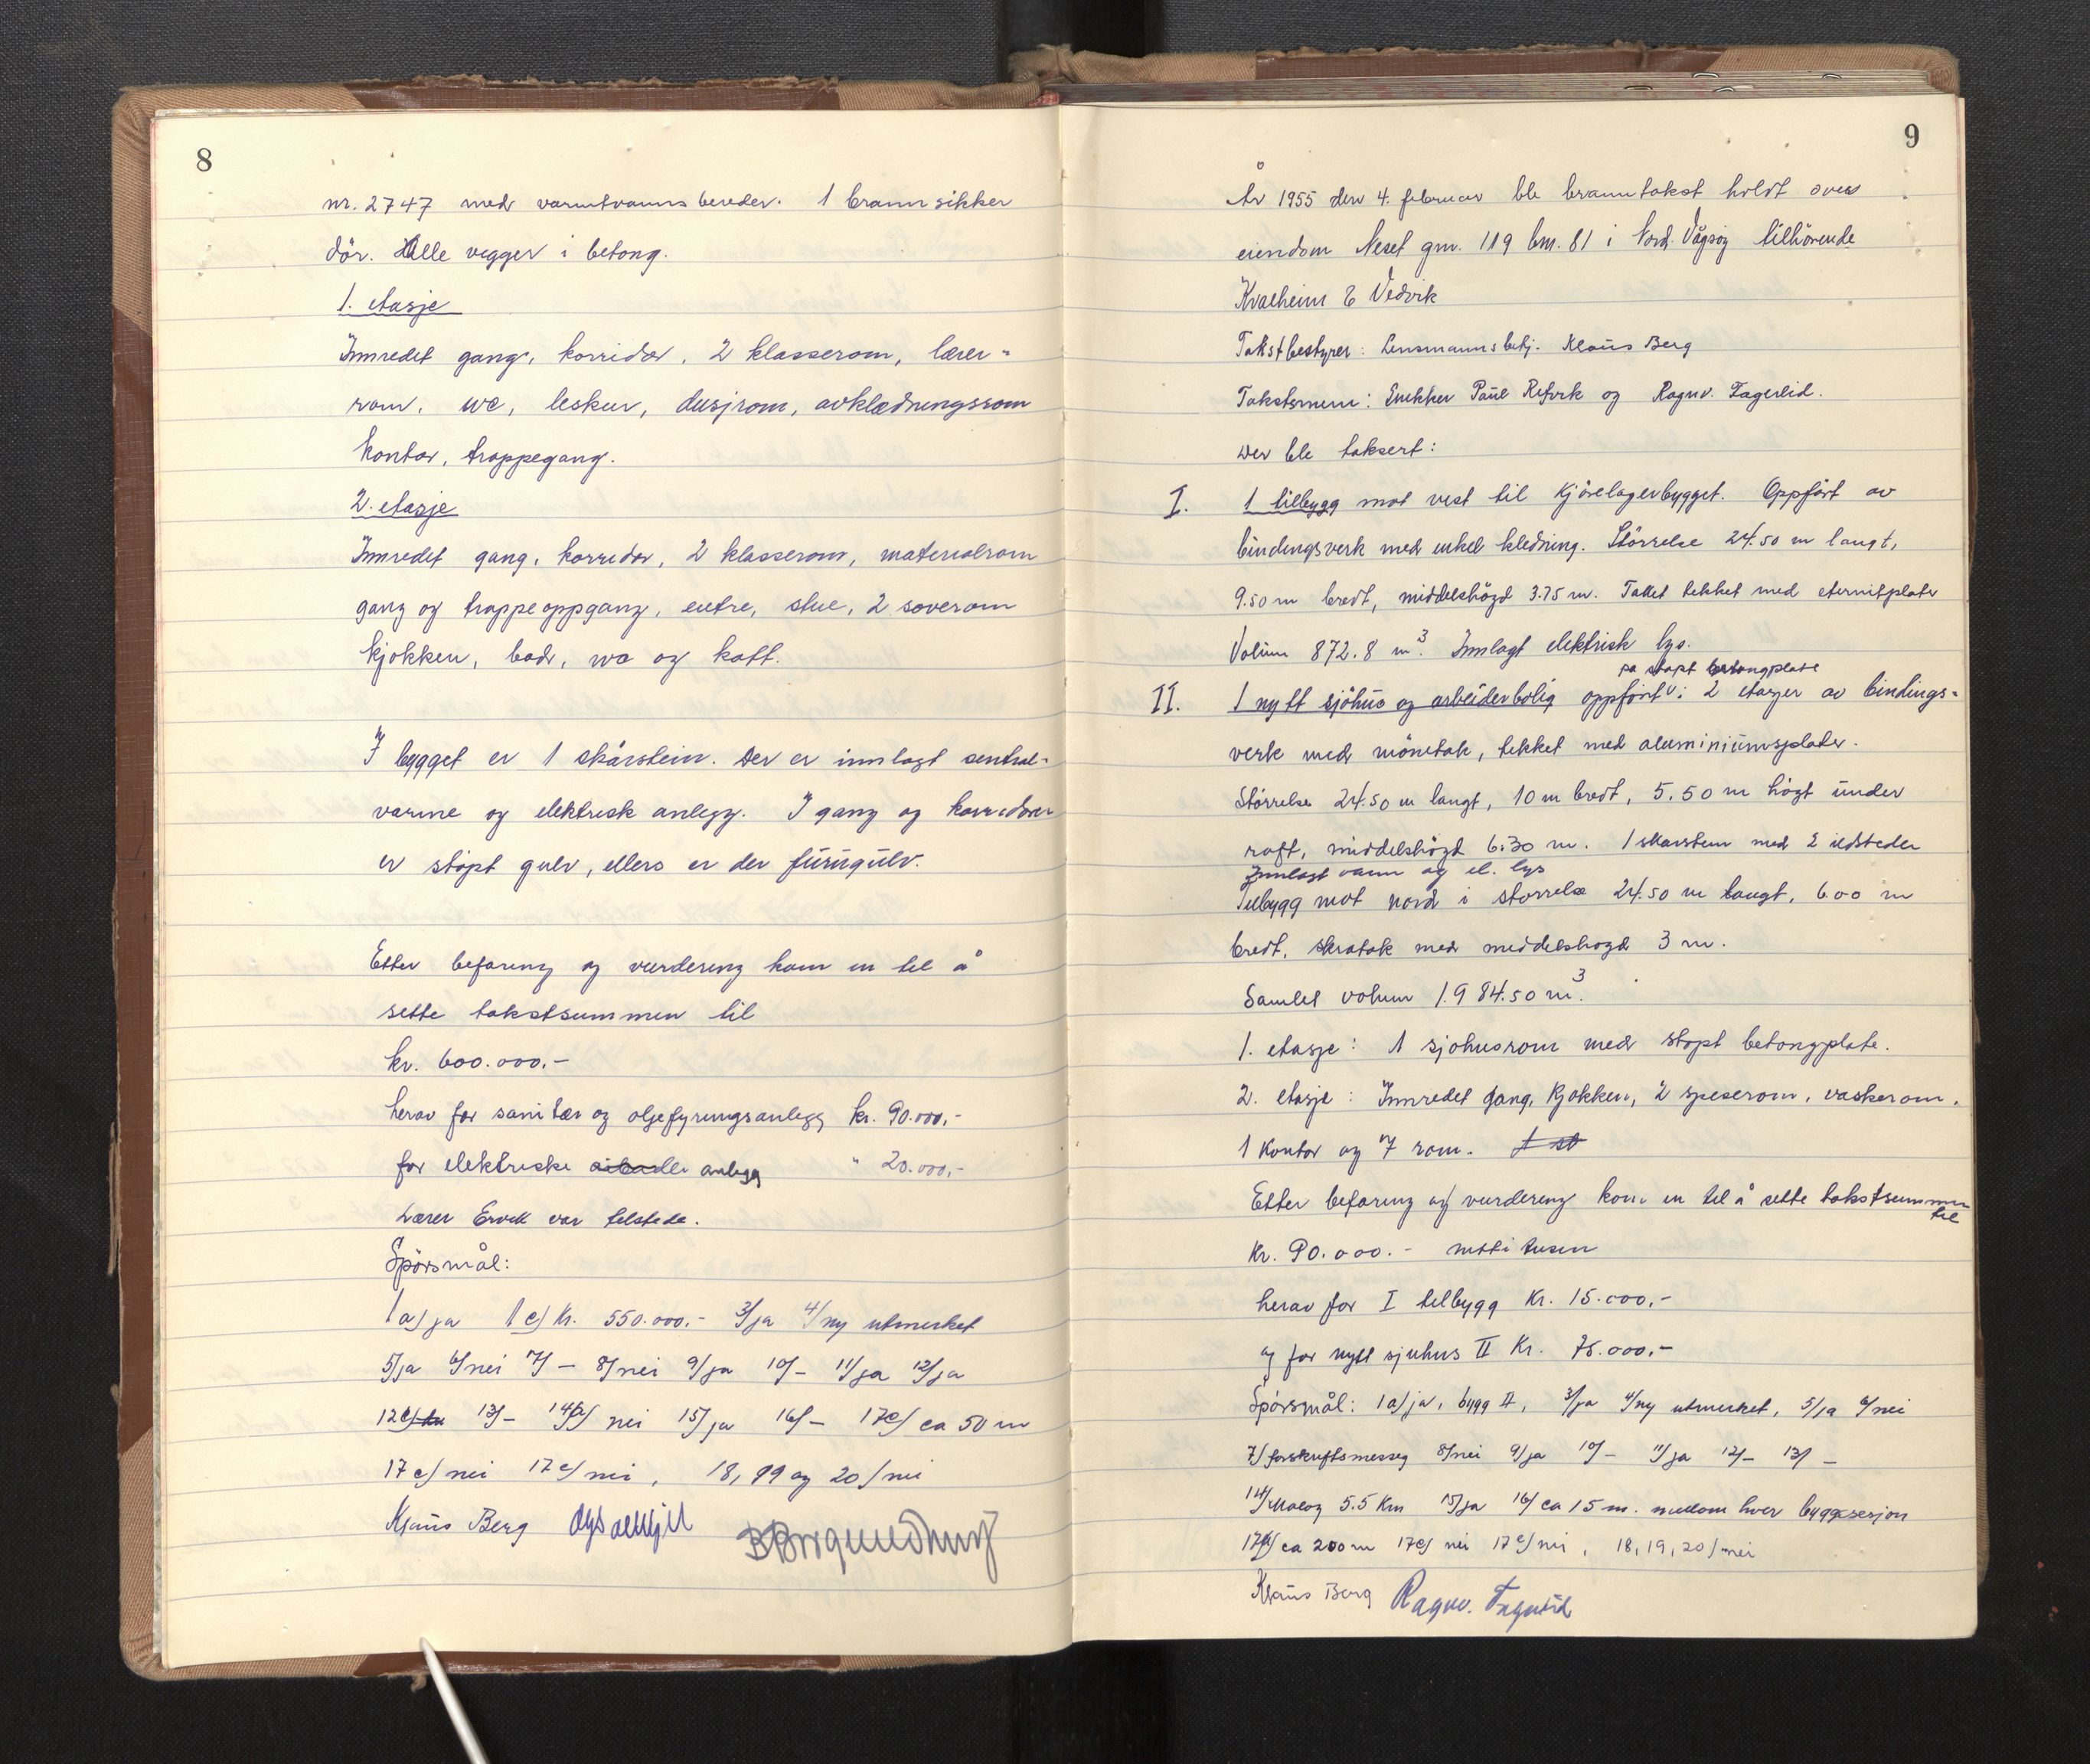 8
nr. 2747 med varmtvannsbereder. 1 brannsikker
dör. Alle vegger i betong.
1. etasje
Innredet gang, korridor, 2 klasserom, lærer-
rom, wc, leskur, dusjrom, avklædningsrom
kontor, trappegang.
2. etasje
Innredet gang, korridor, 2 klasserom, materialrom
gang og trappeoppgang, entre, stue, 2 soverom
kjøkken, bad, wc og kott.
I bygget er 1 skårstein. Der er innlagt sentral-
varme og elektrisk anlegg. I gang og korridorer
er stöpt gulv, ellers er der furugulv.
Etter befaring og vurdering kom en til å
sette takstsummen til
kr. 600.000,-
herav for sanitær og oljefyringsanlegg kr. 90.000,-
for elektriske anlegg " 20.000,-
Lærer Ervik var tilstede.
Spörsmål:
1a) ja 1c) Kr. 550.000,- 3/ja 4/ny utmerket
5/ja 6/nei 7/ - 8/nei 9/ja 10/- 11/ja 12/ja
12c) 13/- 14a/ nei 15/ja 16/- 17a/ ca 50 m
17c/ nei 17e/ nei, 18, 19 og 20/nei
Klaus Berg
9
År 1955 den 4. februar ble branntakst holdt over
eiendom Neset gnr. 119 bnr. 81 i Nord-Vågsøy tilhörende
Kvalheim & Vedvik
Takstbestyrer: Lensmannsbetj. Klaus Berg
Takstmenn: Snekker Paul Refvik og Ragnv. Fagerlid.
Der ble taksert:
I. 1 tilbygg mot vest til Kjörelagerbygget. Oppfört av
bindingsverk med enkel kledning. Störrelse 24.50 m langt,
9.50 m bredt, middelshögd 3.75 m. Taket tekket med eternitplater
Volum 872.8 m³. Innlagt elektrisk lys.
pa stöpt betongplate
II. 1 nytt sjöhus og arbeiderbolig oppfört i 2 etasjer av bindings-
verk med mönetak, tekket med aluminiumsplater.
Störrelse 24.50 m langt, 10 m bredt, 5.50 m högt under
raft, middelshögd 6.30 m. 1 skarstein med 2 ildsteder
Innlagt vann og el. lys
Tilbygg mot nord i störrelse 24.50 m langt, 6.00 m
bredt, skratak med middelshögd 3 m.
Samlet volum 1.984.50 m³.
1. etasje: 1 sjöhusrom med stöpt betongplate.
2. etasje: Innredet gang, kjökken, 2 spiserom, vaskerom,
1 kontor og 7 rom.
Etter befaring og vurdering kom en til å sette takstsummen
til
Kr. 90.000.- nitti tusen
herav for I tilbygg Kr. 15.000,-
og for nytt sjøhus II Kr. 75.000,-
Spörsmål: 1a) ja, bygg II, 3/ja 4/ny utmerket, 5/ja 6/nei
7/ forskriftsmessig 8/nei 9/ja 10/- 11/ja 12/- 13/ -
14/Måløy 5.5 Km 15/ja 16/ ca 15 m. mellom hver byggeseksjon
17a/ ca 200 m 17c/ nei 17e/ nei, 18, 19, 20/ nei
Klaus Berg Ragnv. Fagerlid